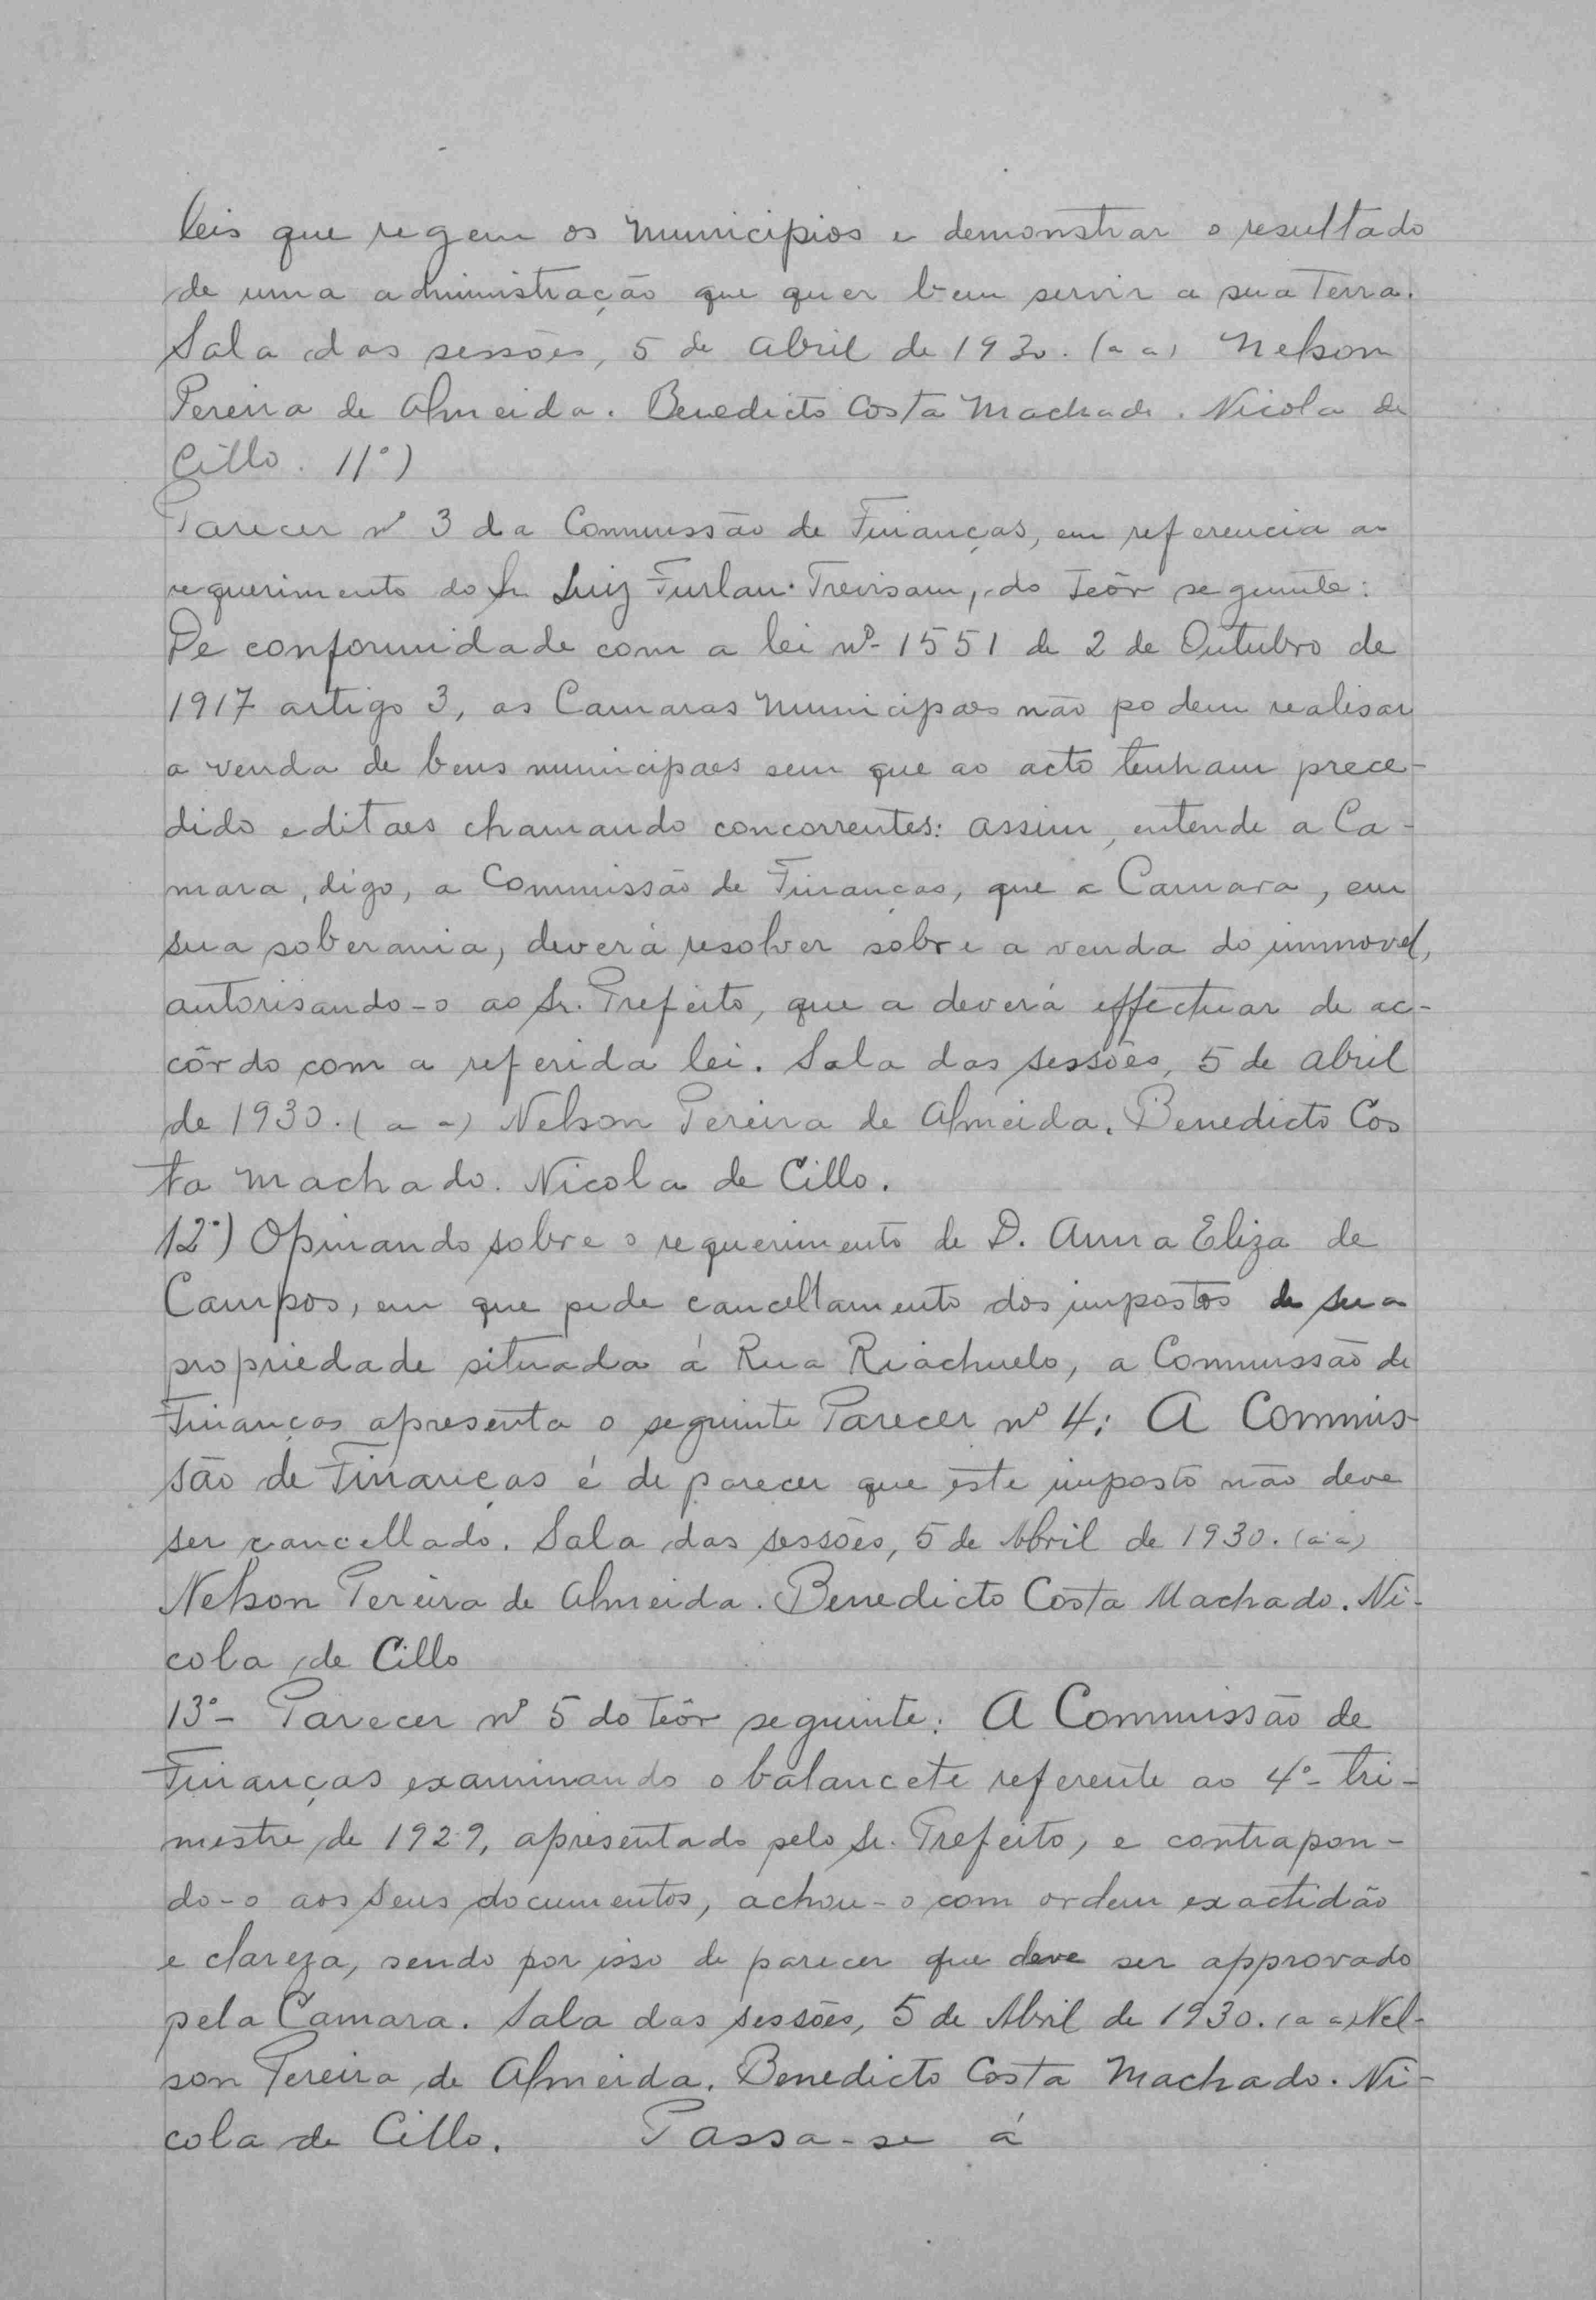 leis que regem os municipios e demonstrar o resultado
de uma administração que quer bem servir a sua terra.
Sala das sessões, 5 de Abril de 1930. (a a) Nelson
Pereira de Almeida. Benedicto Costa Machado. Nicola de
Cillo. 11º)
Parecer nº 3 da Commissão de Finanças, em referencia ao
requerimento do Sr. Luiz Furlan Trevisam, do teôr seguinte:
De conformidade com a lei nº 1551 de 2 de Outubro de
1917 artigo 3, as Camaras Municipaes não podem realisar
a venda de bens municipaes sem que ao acto tenham prece-
dido editaes chamando concorrentes: assim, entende a Ca-
mara, digo, a Commissão de Finanças, que a Camara, em
sua soberania, deverá resolver sobre a venda do immovel,
autorisando-o ao Sr. Prefeito, que a deverá effectuar de ac-
côrdo com a referida lei. Sala das sessões, 5 de Abril
de 1930. (a a) Nelson Pereira de Almeida. Benedicto Cos
ta Machado. Nicola de Cillo.
12º) Opinando sobre o requerimento de D. Anna Eliza de
Campos, em que pede cancellamento dos impostos de sua
propriedade situada á Rua Riachuelo, a Commissão de
Finanças apresenta o seguinte Parecer nº 4: A Commis-
são de Finanças é de parecer que este imposto não deve
ser cancellado. Sala das sessões, 5 de Abril de 1930. (a a)
Nelson Pereira de Almeida. Benedicto Costa Machado. Ni-
cola de Cillo
13º- Parecer nº 5 do teôr seguinte: A Commissão de
Finanças examinando o balancete referente ao 4º- tri-
mestre de 1929, apresentado pelo Sr. Prefeito, e contrapon-
do-o aos seus documentos, achou-o com ordem exactidão
e clareza, sendo por isso de parecer que deve ser approvado
pela Camara. Sala das sessões, 5 de Abril de 1930. (a a) Nel-
son Pereira de Almeida. Benedicto Costa Machado. Ni-
cola de Cillo. Passa-se á